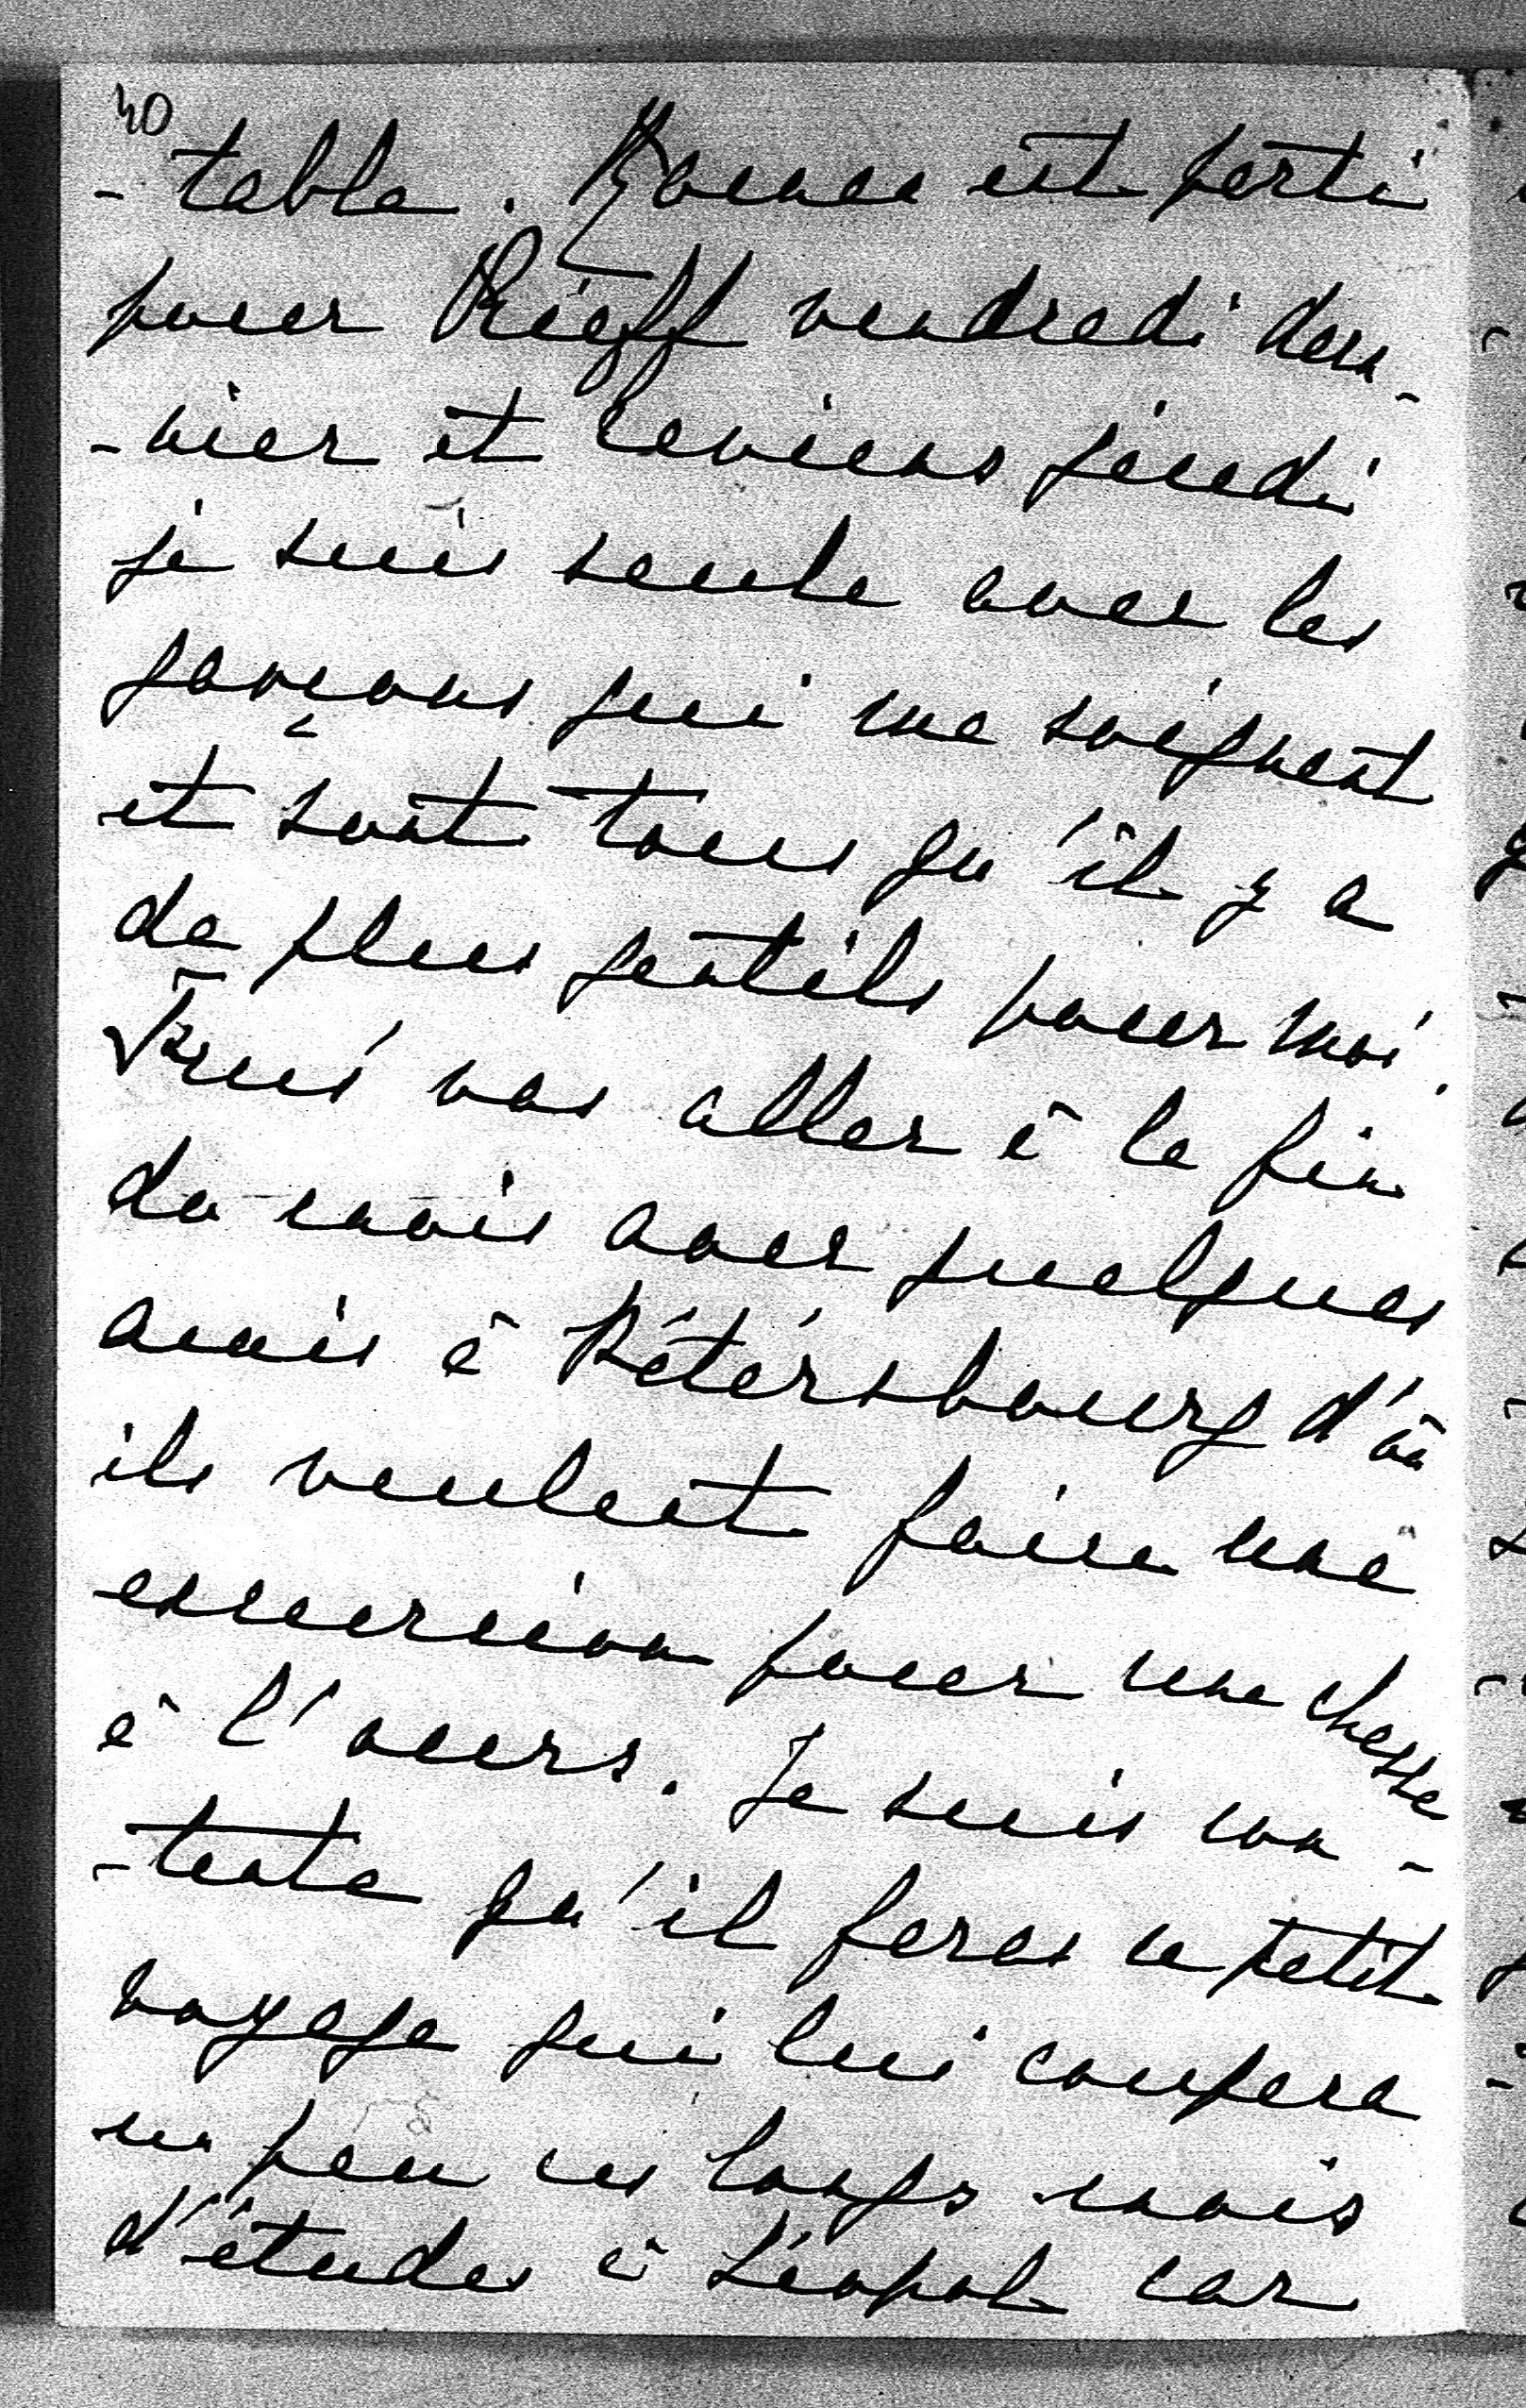 40
-table. est parti
pour Kieff vendredi der-
-nier et reviens jeudi
je suis seule avec les
garçons qui me soignent
et sont tous qu'il y a
de plus gentils pour moi.
vas aller à la fin
du mois avec quelques
amis à Pétérsbourg d'où
ils veulent faire une
excursion pour une chasse
à l'ours. Je suis con-
-tente qu'il feras ce petit
voyage qui lui coupera
un peu ces longs mois
d'études à Léopol car